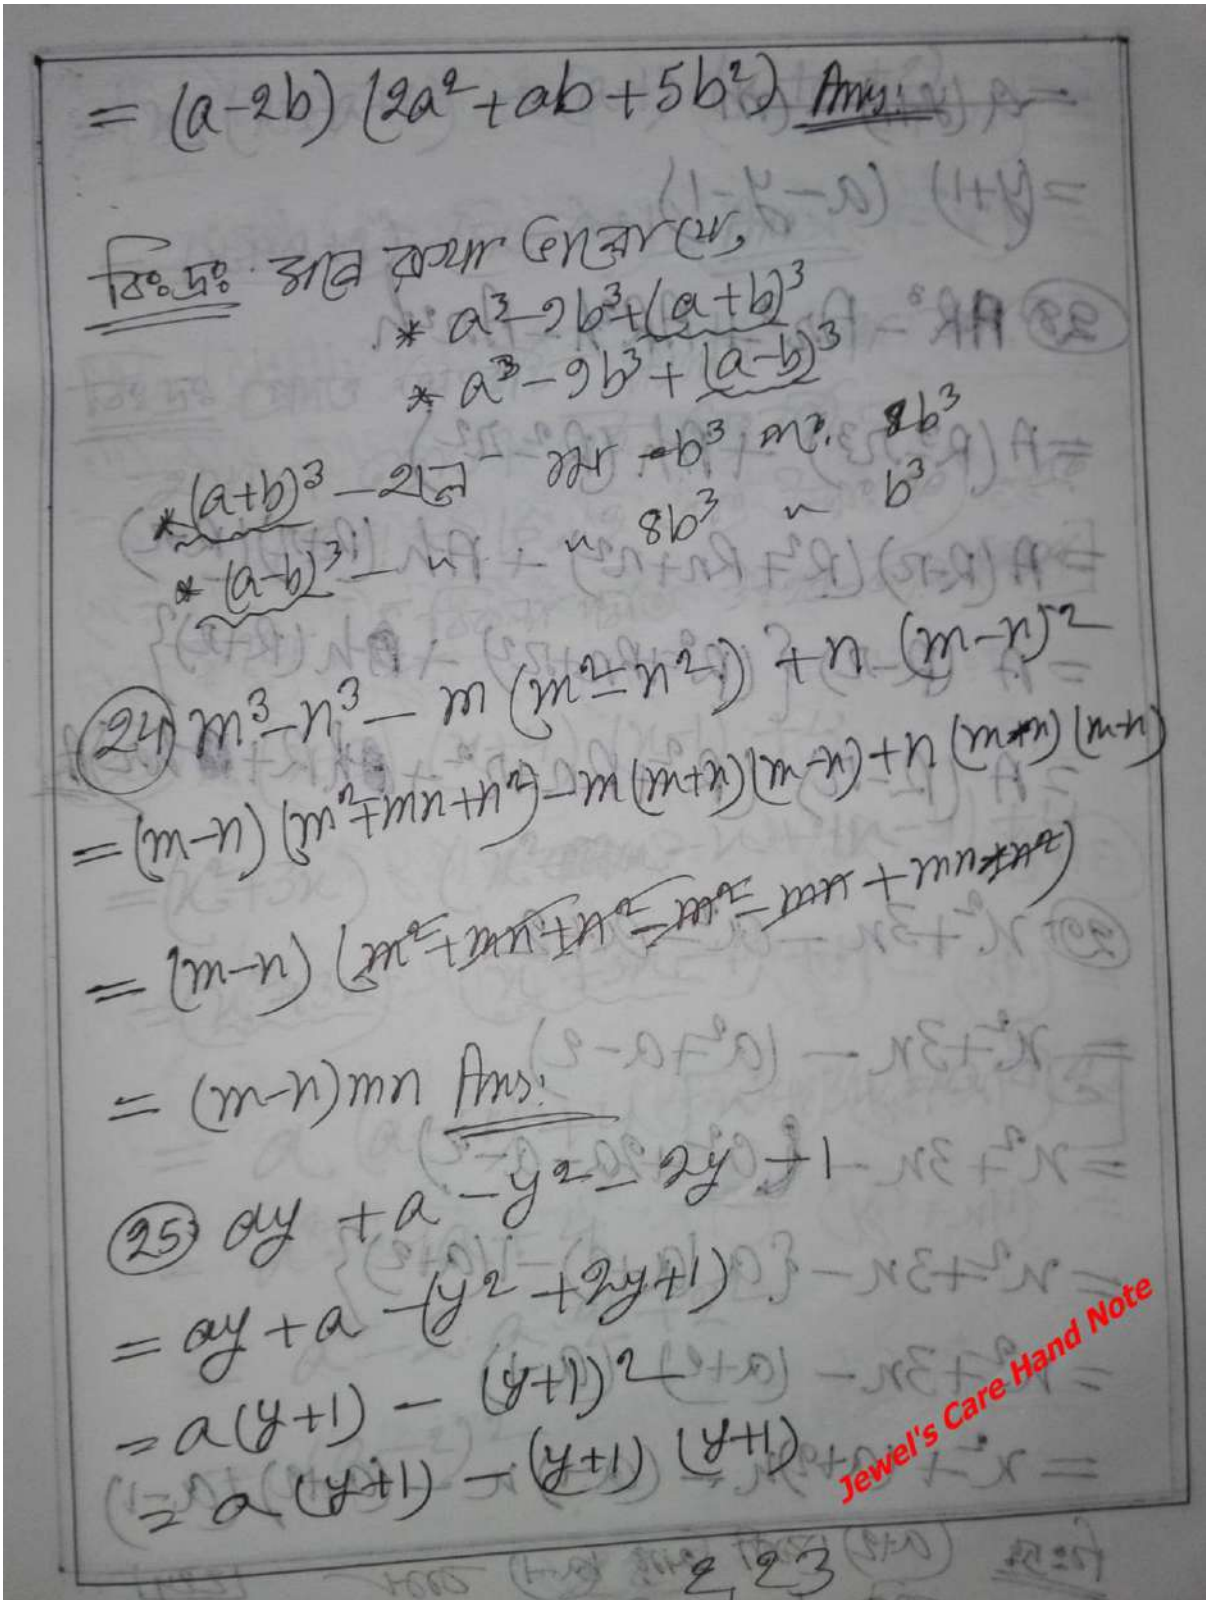 = (a-2b) (2a² + ab + 5b²) Ans:
বিঃদ্রঃ মনে রাখা ভালো যে,
* a³ - 9b³ + (a+b)³
* a³ - 9b³ + (a-b)³
* (a+b)³ - হলে - b³ 8b³
* (a-b)³ - " " 8b³ " b³
24) m³ - n³ - m (m² - n²) + n (m-n)²
= (m-n) (m² + mn + n²) - m (m+n) (m-n) + n (m-n) (m-n)
= (m-n) (m² + mn + n² - m² - mn + mn - n²)
= (m-n) mn Ans:
25) ay + a - y² - 2y + 1
= ay + a - (y² + 2y + 1)
= a (y+1) - (y+1)²
= a (y+1) - (y+1) (y+1)
Jewel's Care Hand Note